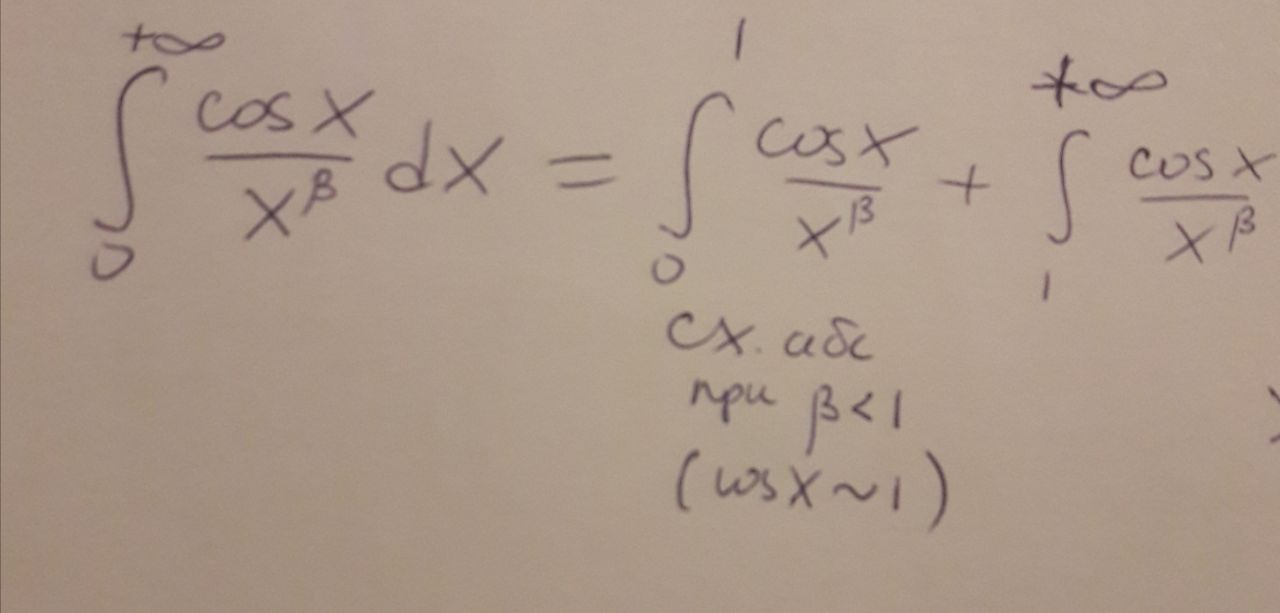 ∫₀^{+∞} cos x / x^β dx = ∫₀^1 cos x / x^β + ∫₁^{+∞} cos x / x^β
сх. абс
при β < 1
(cos x ~ 1)